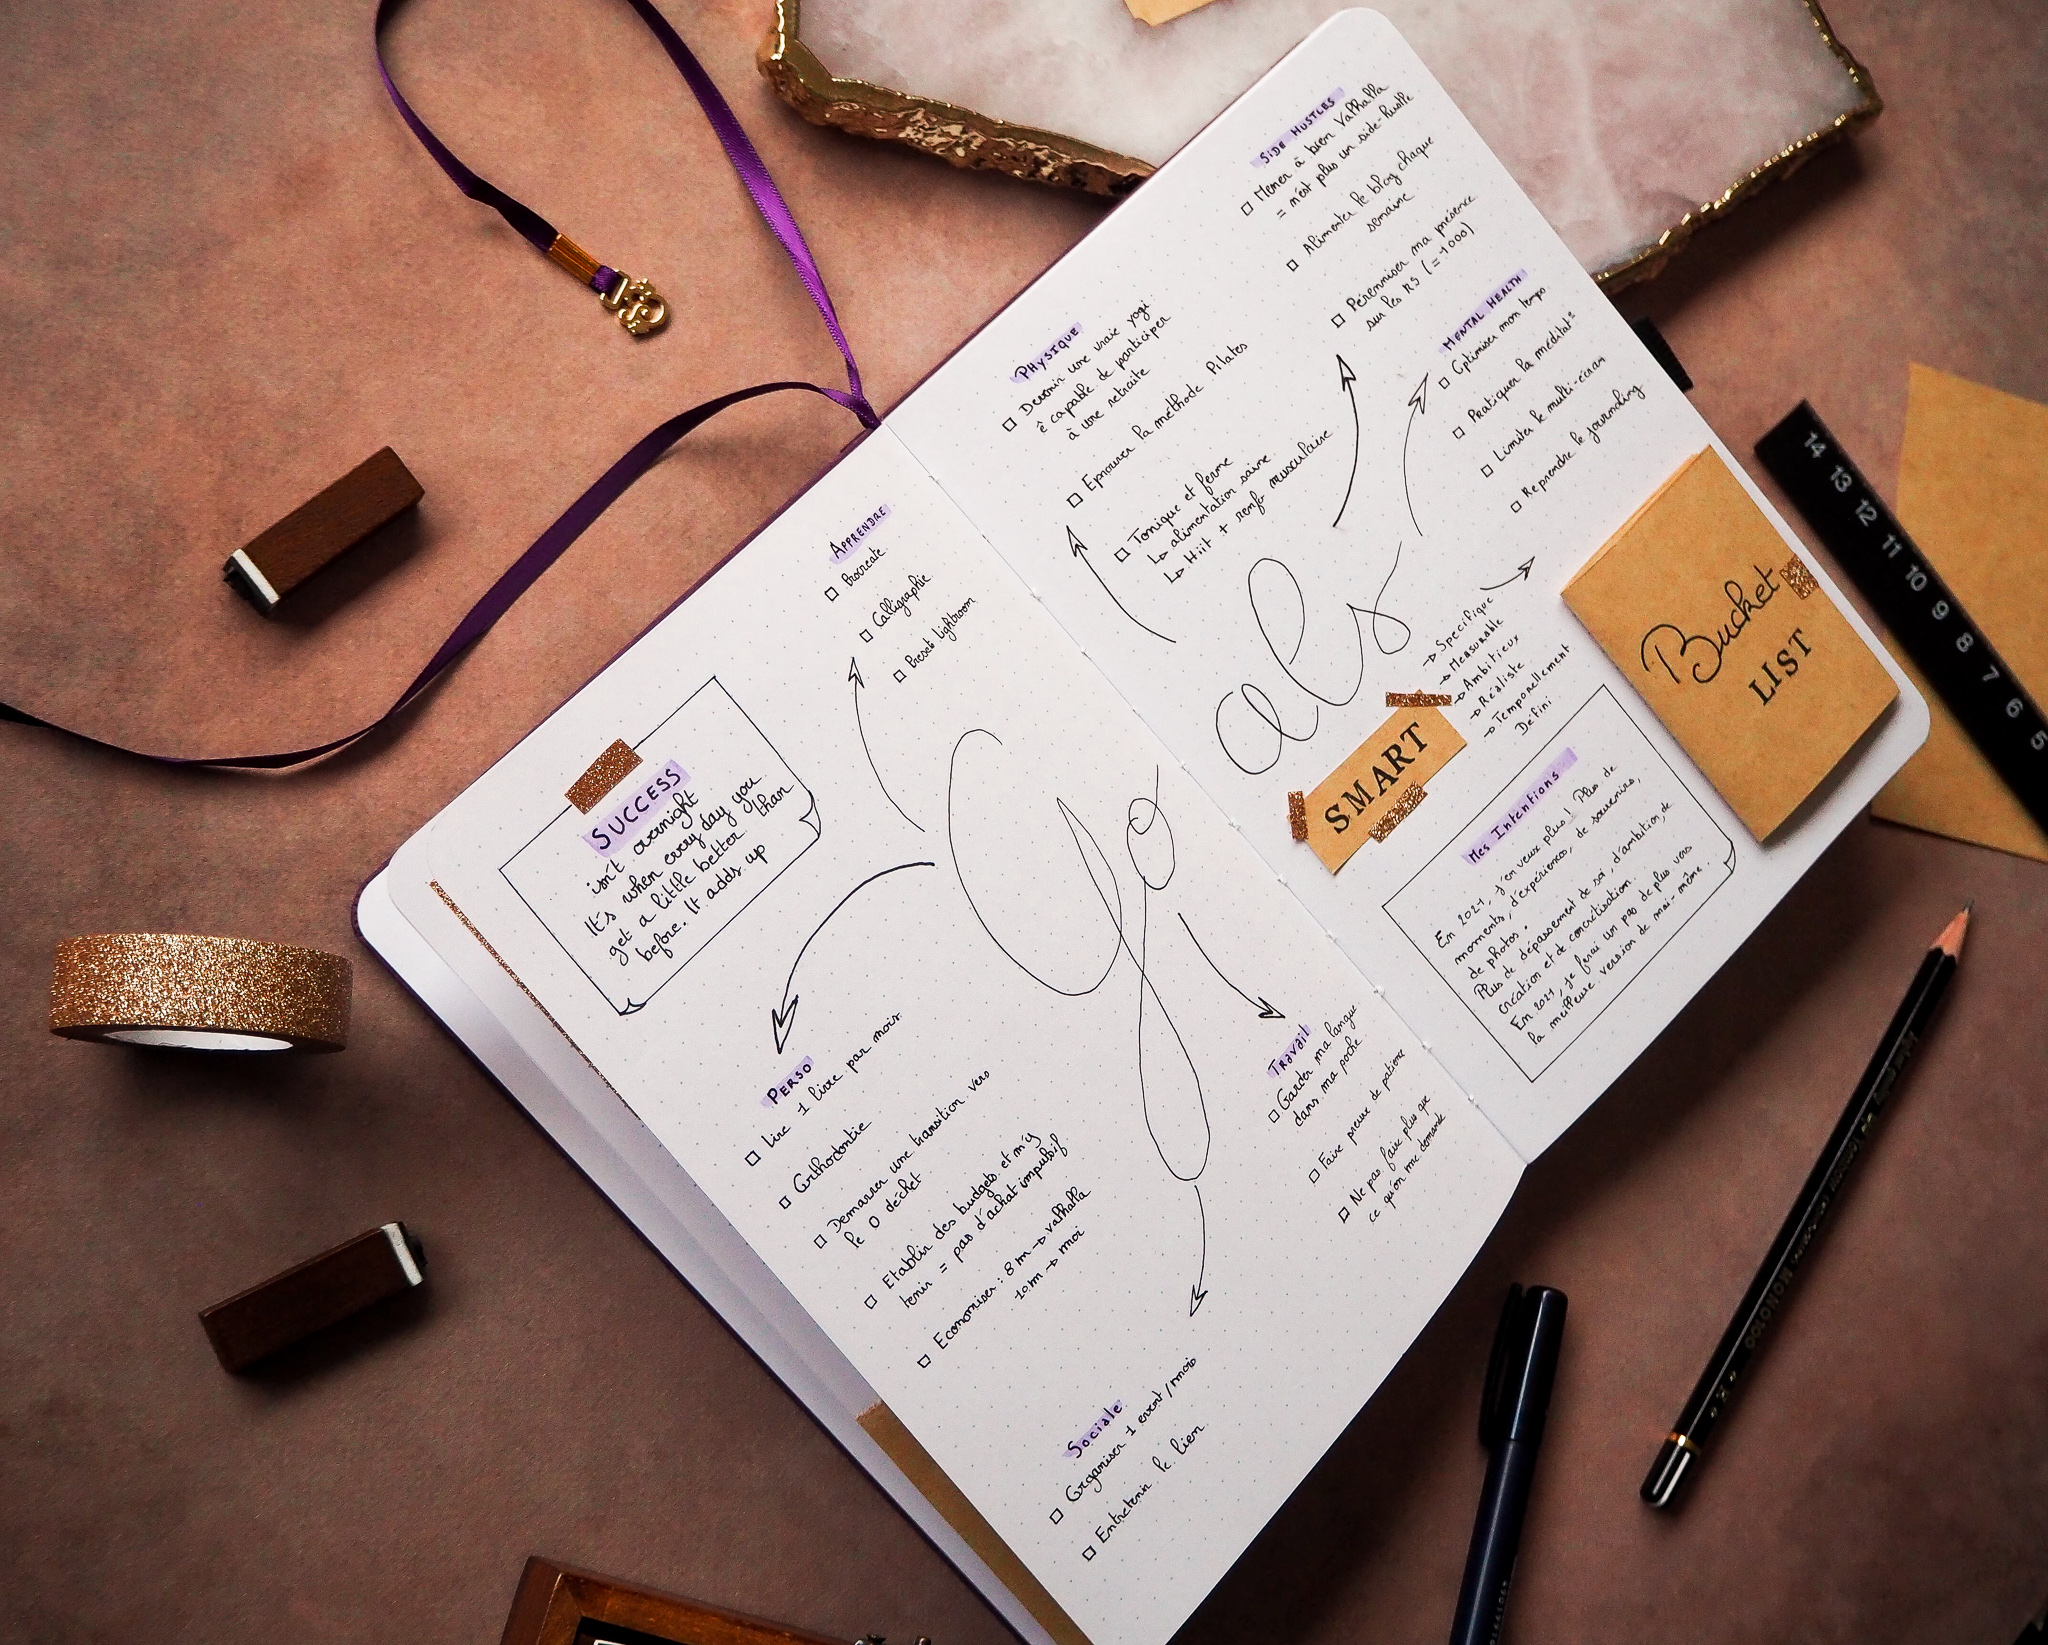 SUCCESS
isn't overnight
It's when every day you
get a little better than
before. It adds up
APPRENDRE
Procreate
Calligraphie
Preset Lightroom
Goals
PERSO
Lire 1 livre par mois
Orthodontie
Demarrer une transition vers
le 0 déchet
Etablir des budgets et m'y
tenir = pas d'achat impulsif
Economiser : 8m → Valhalla
10m → moi
Sociale
Organiser 1 event/mois
Entretenir le lien
Travail
Garder ma langue
dans ma poche
Faire preuve de patience
Ne pas faire plus que
ce qu'on me demande
PHYSIQUE
Devenir une vraie yogi
ê capable de participer
à une retraite
Eprouver la méthode Pilates
Tonique et ferme
↳ alimentation saine
↳ Hiit + renfo musculaire
SIDE HUSTLES
Mener à bien Valhalla
= n'est plus un side-hustle
Alimenter le blog chaque
semaine
Pérenniser ma présence
sur les RS (= 1000)
MENTAL HEALTH
Optimiser mon temps
Pratiquer la méditat°
Limiter le multi-écran
Reprendre le journaling
SMART
→ Specifique
→ Measurable
→ Ambitieux
→ Réaliste
→ Temporellement
Défini
Bucket
LIST
Mes Intentions
En 2021, j'en veux plus! Plus de
moments, d'expériences, de souvenirs,
de photos.
Plus de dépassement de soi, d'ambition, de
création et de concrétisation.
En 2021, je ferai un pas de plus vers
la meilleure version de moi-même.
14 13 12 11 10 9 8 7 6 5